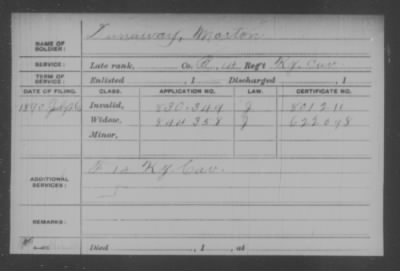 NAME OF SOLDIER: Dunaway, Morton
SERVICE: Late rank, Co. Reg't Ky. Cav
TERM OF SERVICE: Enlisted , 1 Discharged , 1
DATE OF FILING. CLASS. APPLICATION NO. LAW. CERTIFICATE NO.
1890 Invalid, 830.349 J 801211
Widow, 844.358 J 622098
Minor,
ADDITIONAL SERVICES: Ky. Cav.
REMARKS:
Died , 1 , at